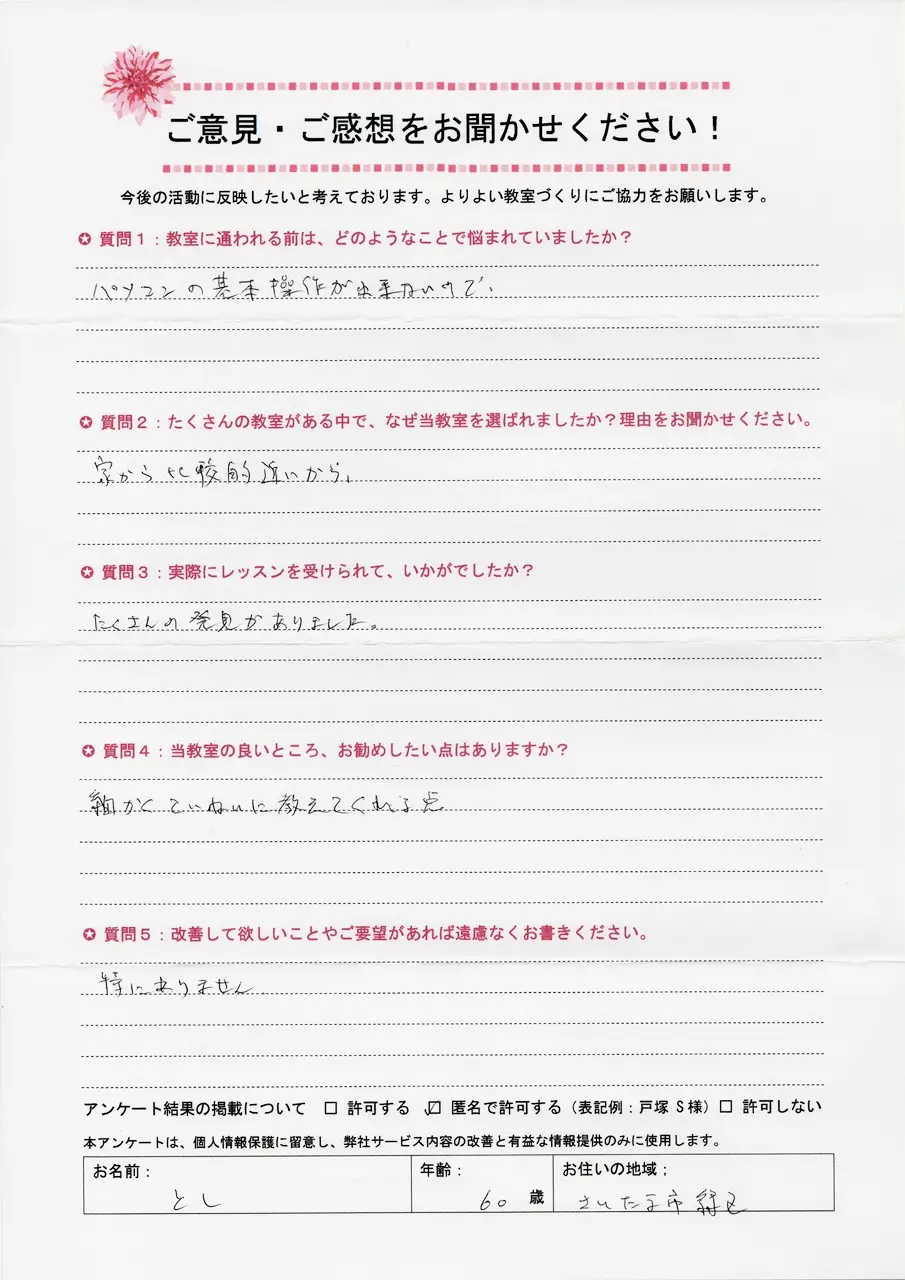 ご意見・ご感想をお聞かせください！
今後の活動に反映したいと考えております。よりよい教室づくりにご協力をお願いします。
✪ 質問１：教室に通われる前は、どのようなことで悩まれていましたか？
パソコンの基本操作が出来ないので、
✪ 質問２：たくさんの教室がある中で、なぜ当教室を選ばれましたか？理由をお聞かせください。
家から比較的近いから、
✪ 質問３：実際にレッスンを受けられて、いかがでしたか？
たくさんの発見がありました。
✪ 質問４：当教室の良いところ、お勧めしたい点はありますか？
細かくていねいに教えてくれる点
✪ 質問５：改善して欲しいことやご要望があれば遠慮なくお書きください。
特にありません
アンケート結果の掲載について □ 許可する ☑ 匿名で許可する（表記例：戸塚 S 様）□ 許可しない
本アンケートは、個人情報保護に留意し、弊社サービス内容の改善と有益な情報提供のみに使用します。
お名前： 年齢： お住いの地域；
とし 60 歳 さいたま市緑区